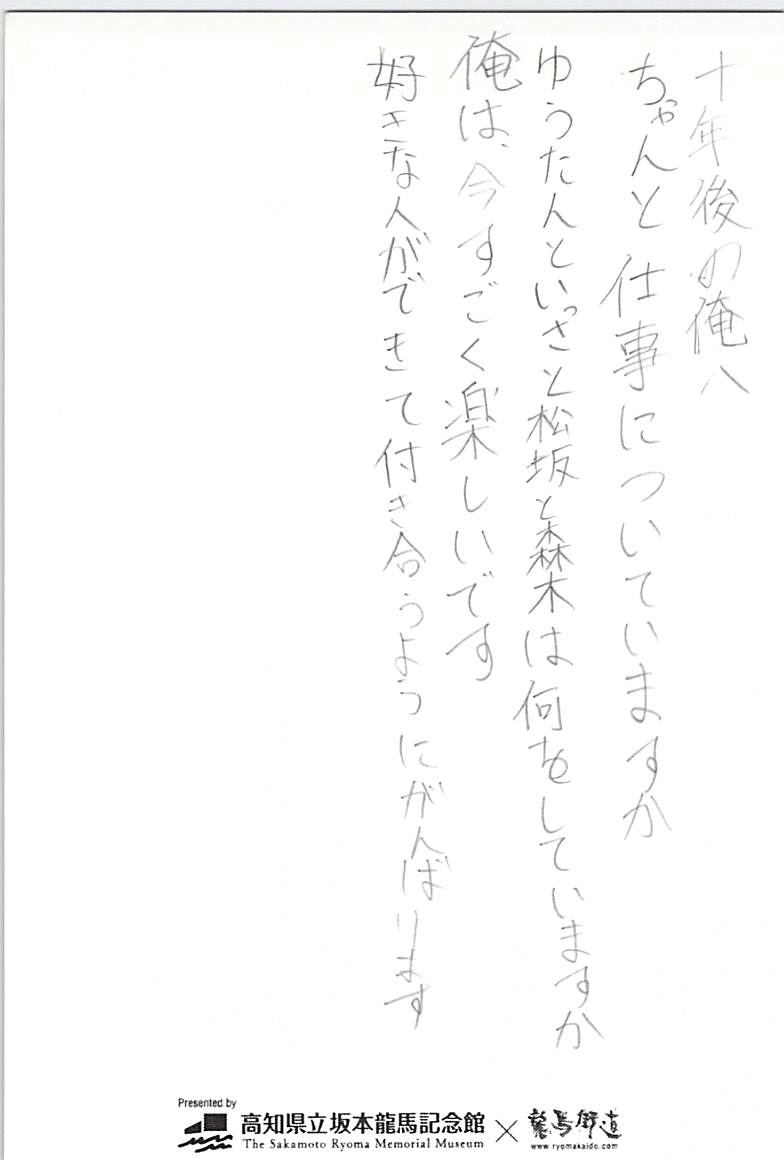 十年後の俺へ
ちゃんと仕事についていますか
ゆうたんといっさと松坂と森木は何をしていますか
俺は、今すごく楽しいです
好きな人ができて付き合うようにがんばります
Presented by
高知県立坂本龍馬記念館
The Sakamoto Ryoma Memorial Museum
×
龍馬街道
www.ryomakaido.com